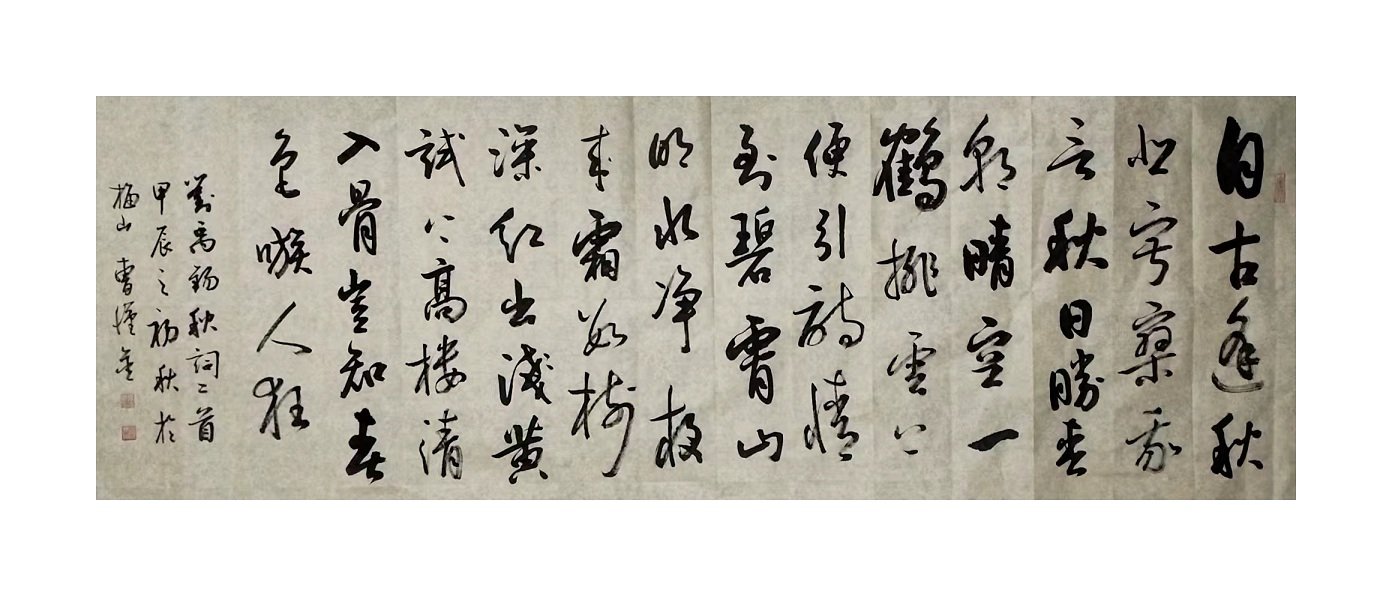 自古逢秋
悲寂寥我
言秋日勝春
朝晴空一
鶴排雲上
便引詩情
到碧霄山
明水净夜
来霜数樹
深红出淺黄
試上高楼清
入骨豈知春
色嗾人狂
劉禹錫秋詞二首
甲辰之初秋於
梅山曹